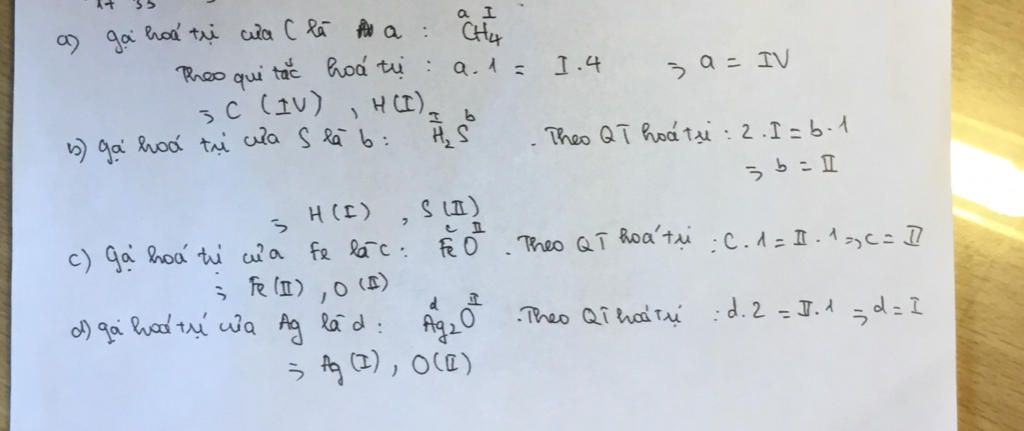 a) gọi hoá trị của C là a : CH₄ (a I)
Theo qui tắc hoá trị : a.1 = I.4 ⇒ a = IV
⇒ C (IV) , H(I)
b) gọi hoá trị của S là b : H₂S (I b) . Theo QT hoá trị : 2.I = b.1
⇒ b = II
⇒ H(I) , S(II)
c) gọi hoá trị của Fe là c : FeO (c II) . Theo QT hoá trị : c.1 = II.1 ⇒ c = II
⇒ Fe(II) , O(II)
d) gọi hoá trị của Ag là d : Ag₂O (d II) . Theo QT hoá trị : d.2 = II.1 ⇒ d = I
⇒ Ag(I) , O(II)